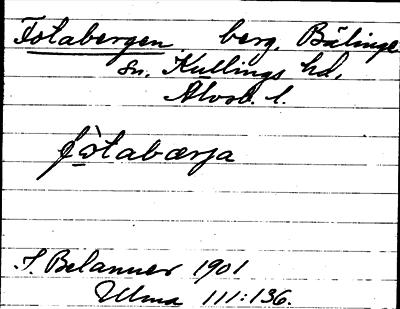 Fotabergen, berg, Bälinge
sn. Kullings hd,
Älvsb. l.
fòtabærja
S. Belanner 1901
Ulma 111:136.